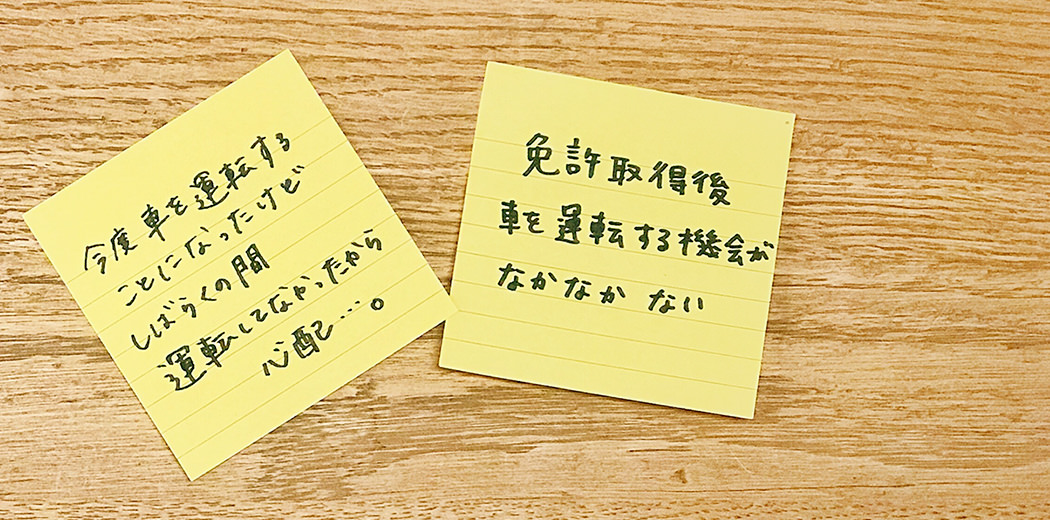 今度車を運転する
ことになったけど
しばらくの間
運転してなかったから
心配…。
免許取得後
車を運転する機会が
なかなかない